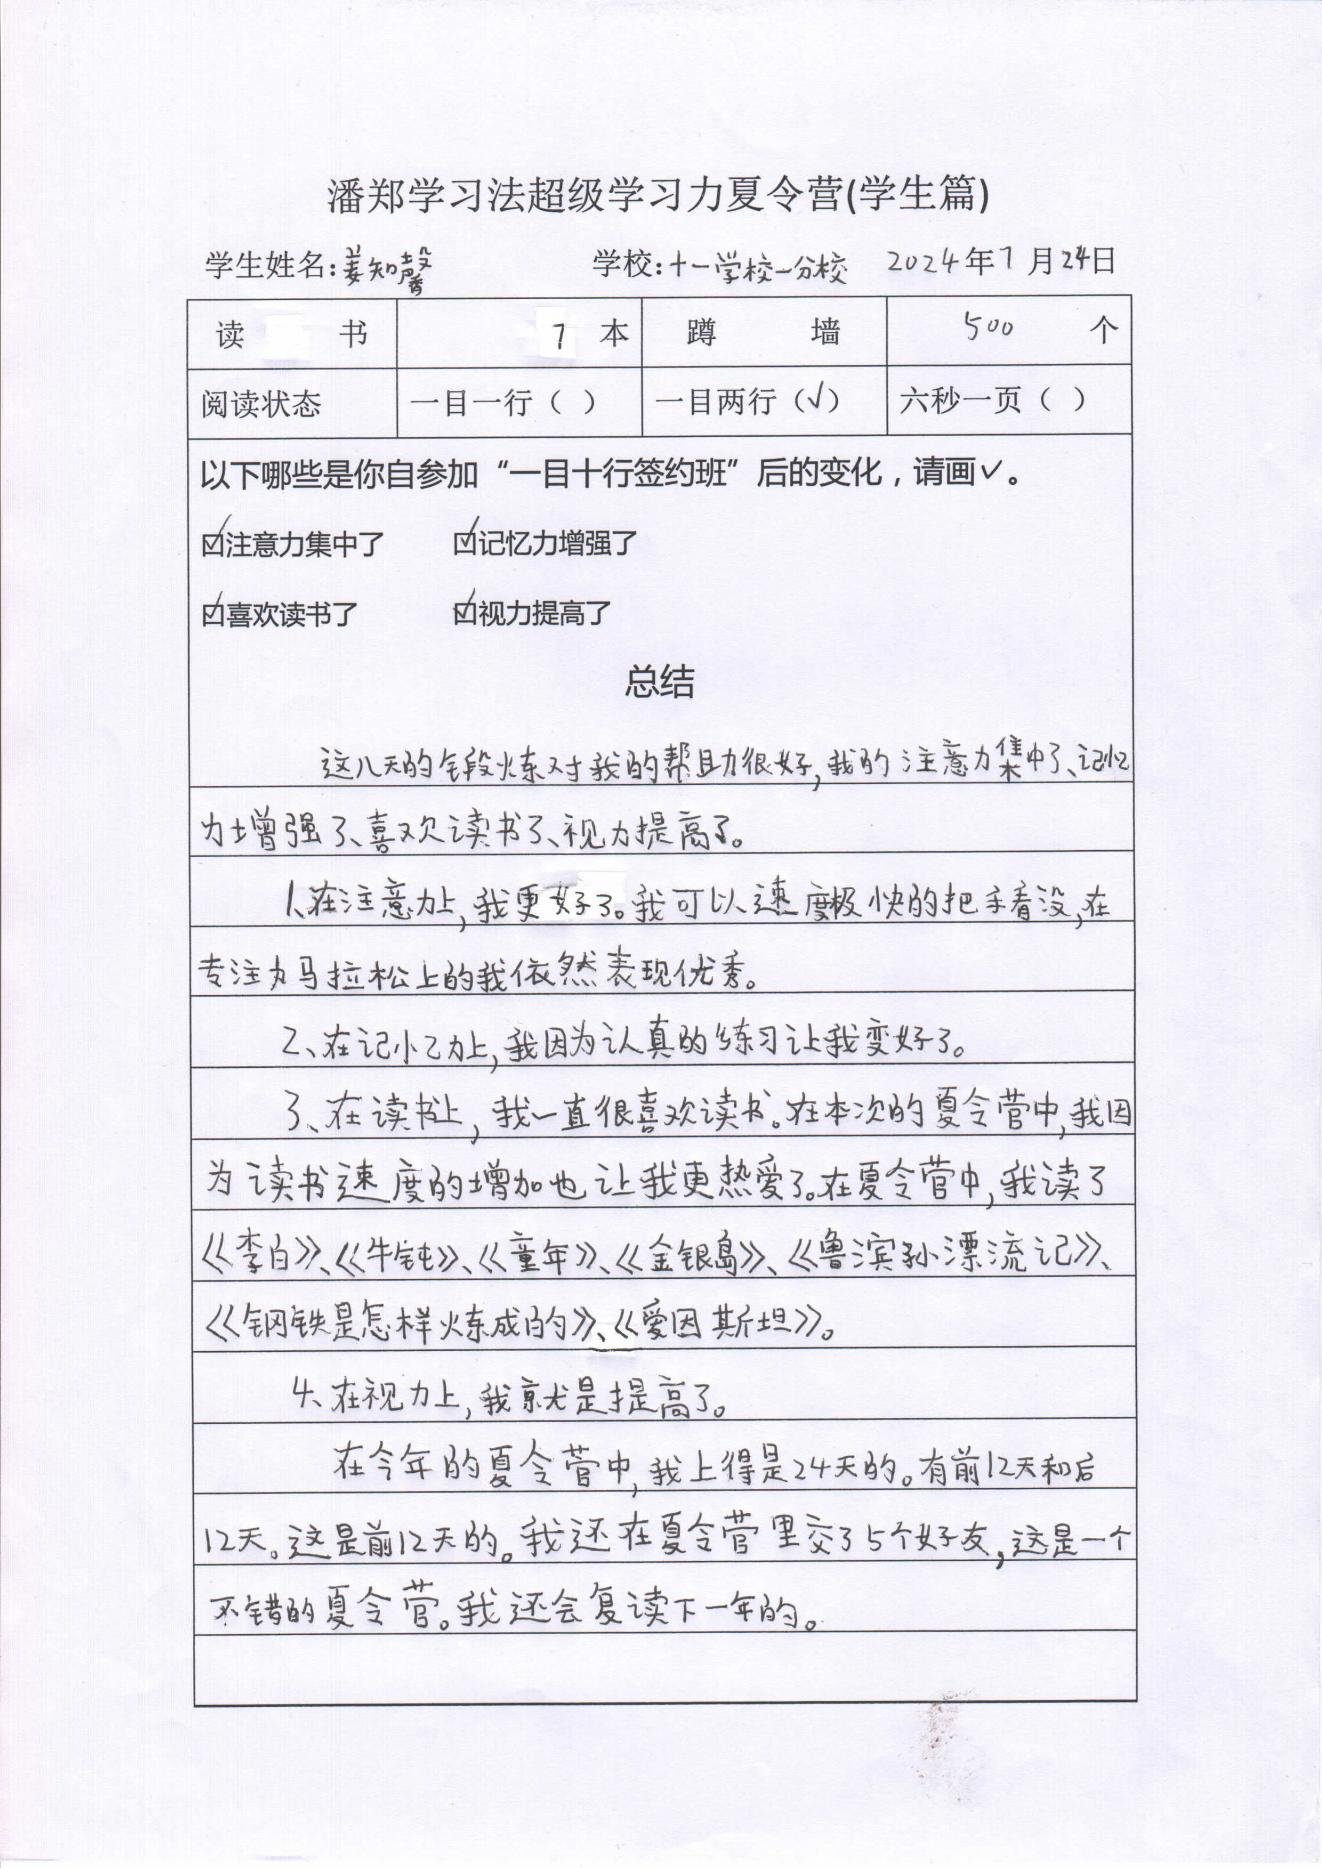 潘郑学习法超级学习力夏令营(学生篇)
学生姓名:姜知馨 学校:十一学校一分校 2024年7月24日
读 书 7 本 蹲 墙 500 个
阅读状态 一目一行（ ） 一目两行（√） 六秒一页（ ）
以下哪些是你自参加“一目十行签约班”后的变化，请画✓。
☑注意力集中了 ☑记忆力增强了
☑喜欢读书了 ☑视力提高了
总结
这八天的锻炼对我的帮助很好,我的注意力集中了、记忆
力增强了、喜欢读书了、视力提高了。
1、在注意力上,我更好了。我可以速度极快的把手看没,在
专注力马拉松上的我依然表现优秀。
2、在记忆力上,我因为认真的练习让我变好了。
3、在读书上,我一直很喜欢读书。在本次的夏令营中,我因
为读书速度的增加也让我更热爱了。在夏令营中,我读了
《李白》、《牛钝》、《童年》、《金银岛》、《鲁滨孙漂流记》、
《钢铁是怎样炼成的》、《爱因斯坦》。
4、在视力上,我就是提高了。
在今年的夏令营中,我上得是24天的。有前12天和后
12天。这是前12天的。我还在夏令营里交了5个好友,这是一个
不错的夏令营。我还会复读下一年的。